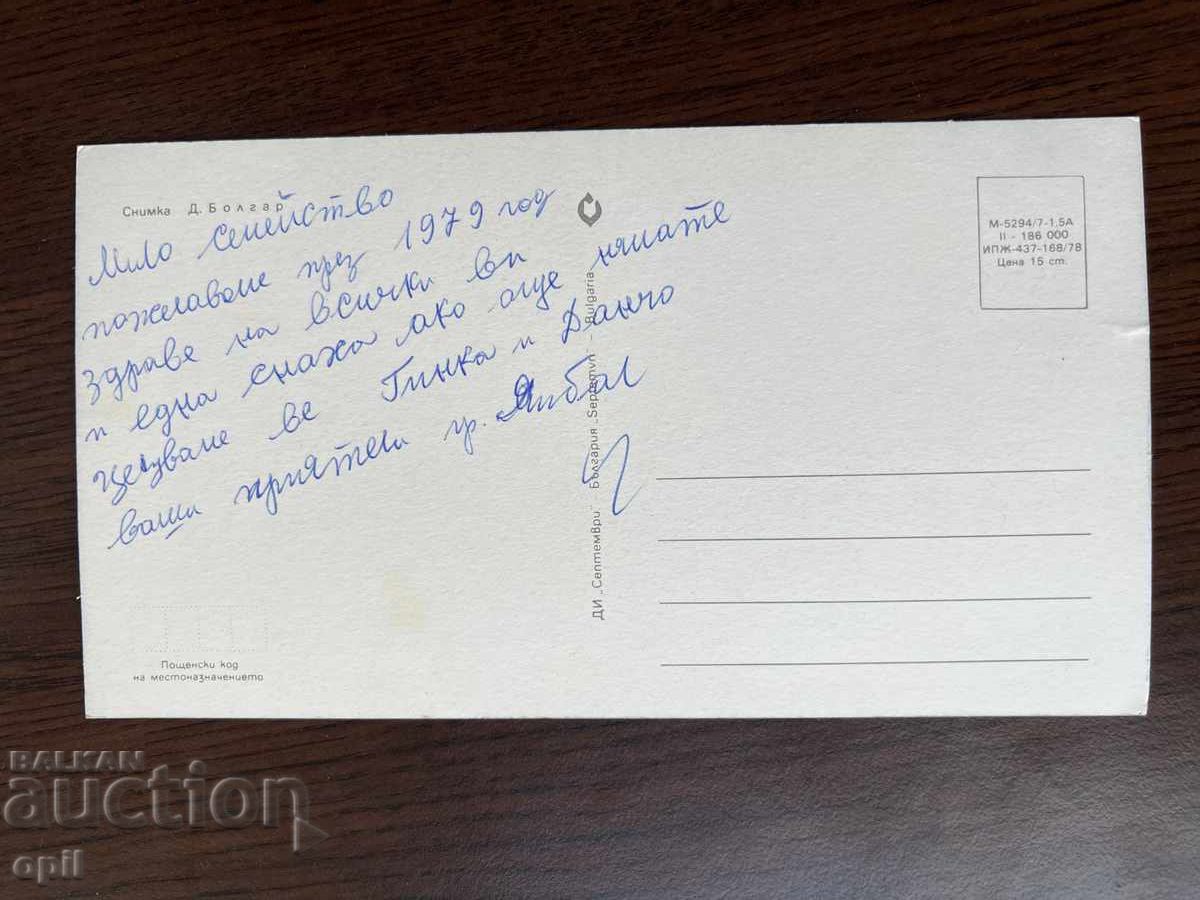 Снимка Д. Болгар
Мило семейство
пожелаваме през 1979 год
здраве на всички ви
и една снаха ако още нямате
целуваме ве Гинка и Данчо
ваши приятели гр. Ямбол
ДИ „Септември" България „Septemvri" – Bulgaria
М-5294/7-1,5А
II - 186 000
ИПЖ-437-168/78
Цена 15 ст.
Пощенски код
на местоназначението
BALKAN
auction
opil